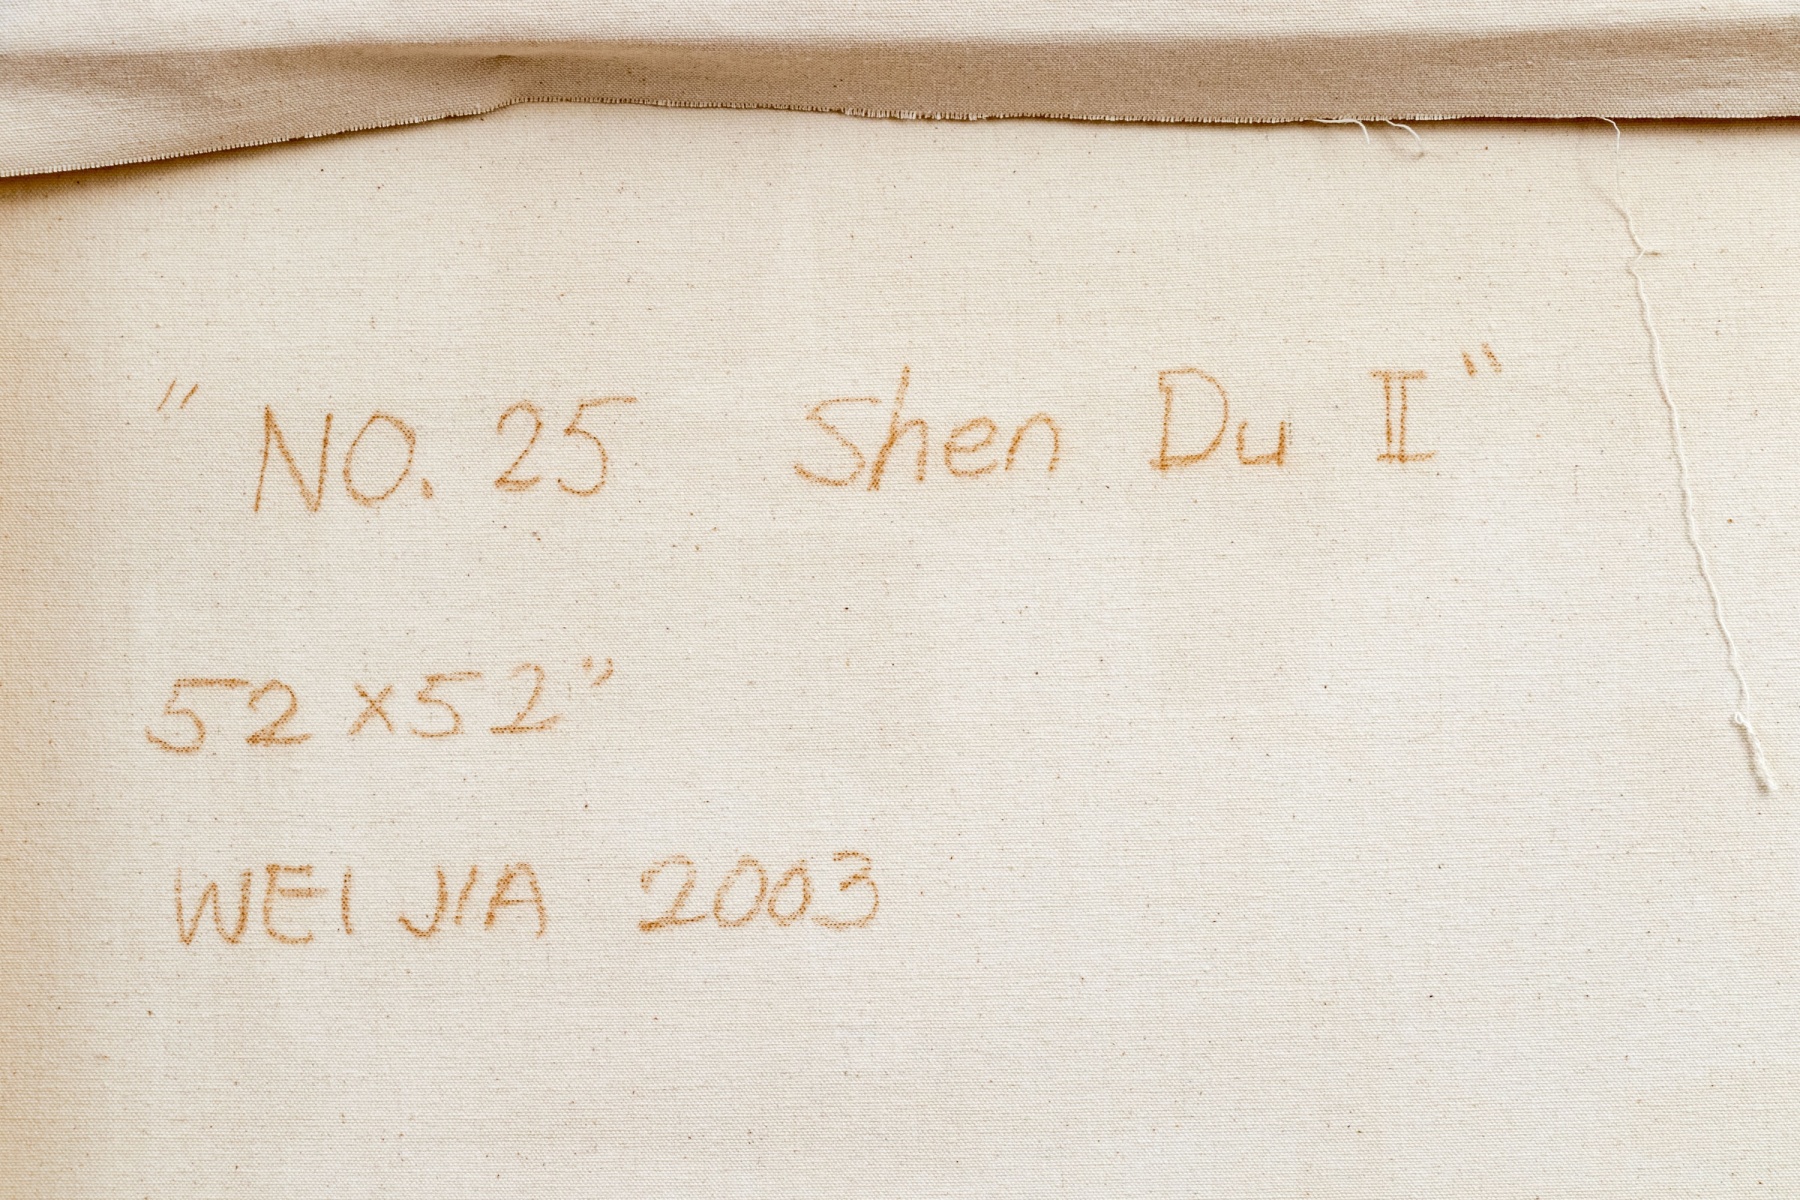 "NO. 25 Shen Du II"
52 x 52"
WEI JIA 2003